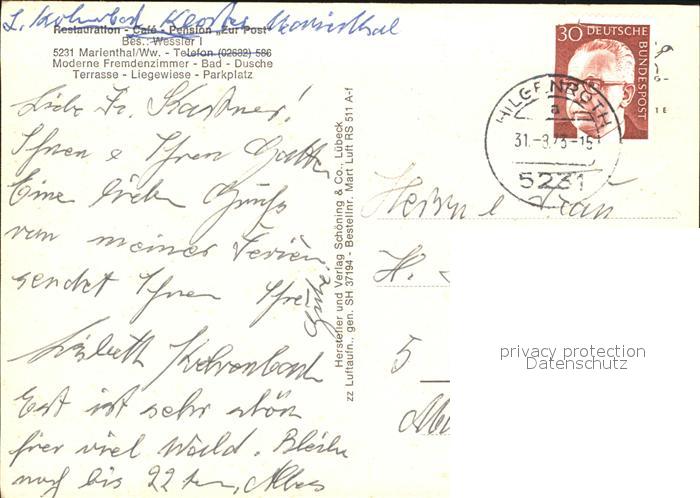 L. Kohrenbach Kloster Marienthal
Restauration - Café - Pension „Zur Post"
Bes.: Wessler I
5231 Marienthal/Ww. - Telefon (02682) 586
Moderne Fremdenzimmer - Bad - Dusche
Terrasse - Liegewiese - Parkplatz
Liebe Fr. Kastner!
Ihnen & Ihren Gatten
Eine lieben Gruß
von meiner Ferien
sendet Ihnen Ihre
Lisbeth
Est ist sehr schön
hier viel Wald. Bleibe
noch bis 22 ten, Alles
Gute!
Hersteller und Verlag Schöning & Co., Lübeck
zz Luftaufn., gen. SH 37194 - Bestellnr. Mart Luft RS 511 A-f
30 DEUTSCHE
BUNDESPOST
HILGENROTH
a
31.-8.73-15
5231
Herrn & Frau
H.
5
privacy protection
Datenschutz